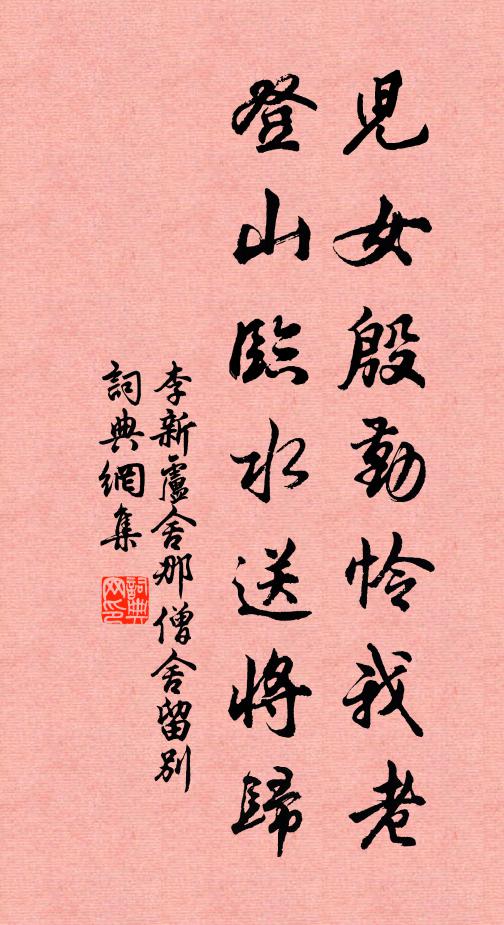 兒女殷勤怜我老
登山臨水送將歸
李新盧舍那僧舍留別
詞典網集
詞典網印